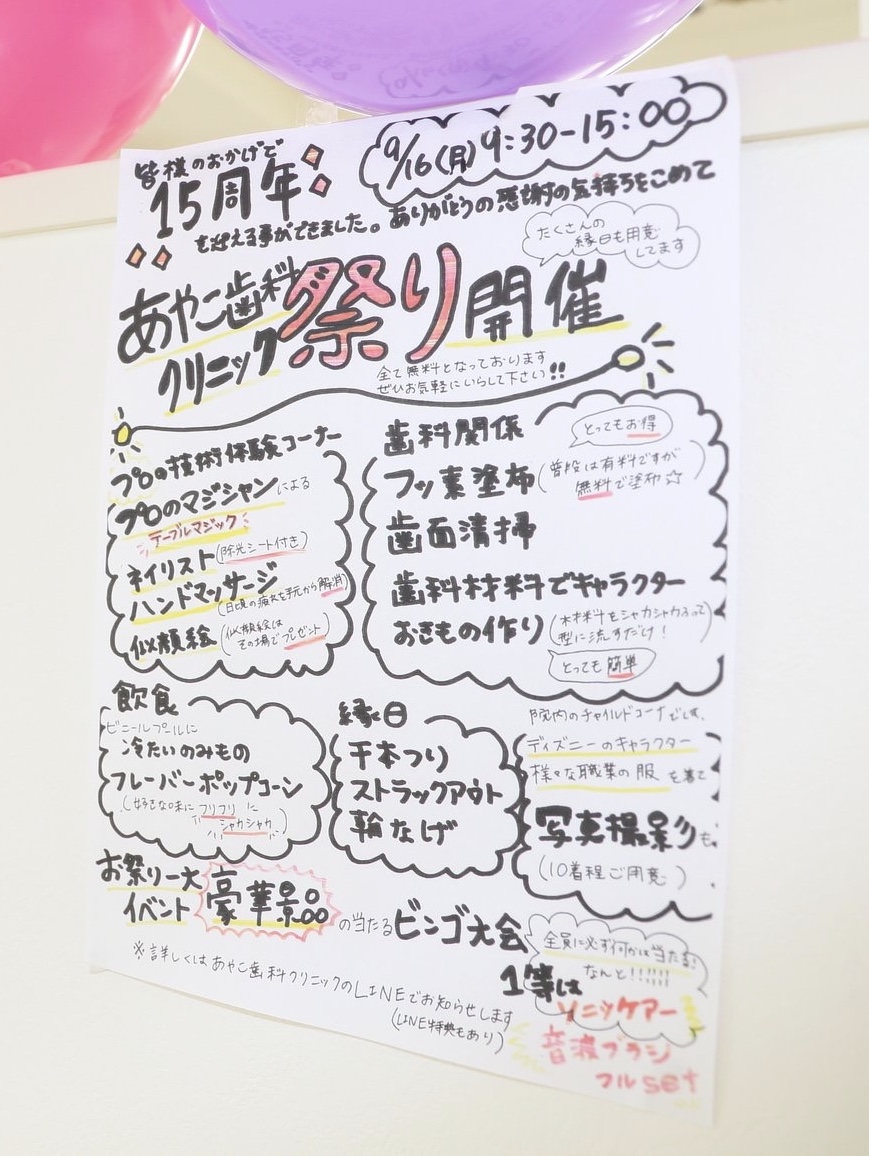 皆様のおかげで
15周年
を迎える事ができました。ありがとうの感謝の気持ちをこめて
9/16(月)9:30-15:00
たくさんの
縁日も用意
してます
あやこ歯科
クリニック
祭り開催
全て無料となっております
ぜひお気軽にいらして下さい!!
プロの技術体験コーナー
プロのマジシャンによる
テーブルマジック
ネイリスト(除光シート付き)
ハンドマッサージ
(日頃の疲れを手元から解消)
似顔絵(似顔絵は
その場でプレゼント)
歯科関係
とってもお得
フッ素塗布(普段は有料ですが
無料で塗布☆)
歯面清掃
歯科材料でキャラクター
おきもの作り(材料をシャカシャカふって
型に流すだけ!)
とっても簡単
飲食
ビニールプールに
冷たいのみもの
フレーバーポップコーン
(好きな味にフリフリ
シャカシャカ)
縁日
千本つり
ストラックアウト
輪なげ
院内のチャイルドコーナーでは、
ディズニーのキャラクター
様々な職業の服を着て
写真撮影も
(10着程ご用意)
お祭り一大
イベント
豪華景品の当たるビンゴ大会
全員に必ず何かは当たる!
なんと!!!!!!
1等は
ソニッケアー
音波ブラシ
フルset
※詳しくはあやこ歯科クリニックのLINEでお知らせします
(LINE特典もあり)